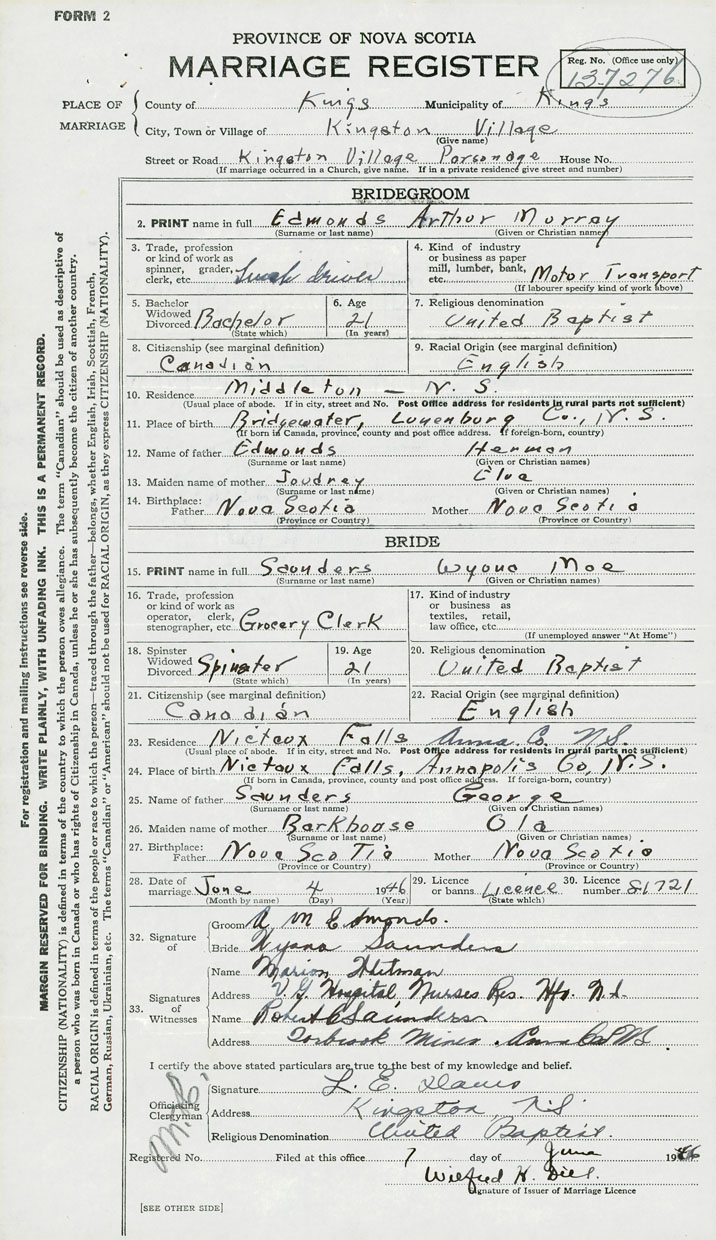 FORM 2
PROVINCE OF NOVA SCOTIA
MARRIAGE REGISTER
Reg. No. (Office use only)
137276
PLACE OF MARRIAGE
County of Kings Municipality of Kings
City, Town or Village of Kingston Village
(Give name)
Street or Road Kingston Village Parsonage House No.
(If marriage occurred in a Church, give name. If in a private residence give street and number)
BRIDEGROOM
2. PRINT name in full Edmonds Arthur Murray
(Surname or last name) (Given or Christian name)
3. Trade, profession or kind of work as spinner, grader, clerk, etc. Truck driver
4. Kind of industry or business as paper mill, lumber, bank, etc. Motor Transport
(If labourer specify kind of work above)
5. Bachelor Widowed Divorced Bachelor
(State which)
6. Age 21
(In years)
7. Religious denomination
United Baptist
8. Citizenship (see marginal definition)
Canadian
9. Racial Origin (see marginal definition)
English
10. Residence Middleton — N. S.
(Usual place of abode. If in city, street and No. Post Office address for residents in rural parts not sufficient)
11. Place of birth Bridgewater, Lunenburg Co., N. S.
(If born in Canada, province, county and post office address. If foreign-born, country)
12. Name of father Edmonds Herman
(Surname or last name) (Given or Christian names)
13. Maiden name of mother Joudrey Elva
(Surname or last name) (Given or Christian names)
14. Birthplace: Father Nova Scotia Mother Nova Scotia
(Province or Country) (Province or Country)
BRIDE
15. PRINT name in full Saunders Wyona Mae
(Surname or last name) (Given or Christian names)
16. Trade, profession or kind of work as operator, clerk, stenographer, etc. Grocery Clerk
17. Kind of industry or business as textiles, retail, law office, etc.
(If unemployed answer "At Home")
18. Spinster Widowed Divorced Spinster
(State which)
19. Age 21
(In years)
20. Religious denomination
United Baptist
21. Citizenship (see marginal definition)
Canadian
22. Racial Origin (see marginal definition)
English
23. Residence Nictaux Falls Anna. Co. N.S.
(Usual place of abode. If in city, street and No. Post Office address for residents in rural parts not sufficient)
24. Place of birth Nictaux Falls, Annapolis Co, N.S.
(If born in Canada, province, county and post office address. If foreign-born, country)
25. Name of father Saunders George
(Surname or last name) (Given or Christian names)
26. Maiden name of mother Barkhouse Ola
(Surname or last name) (Given or Christian names)
27. Birthplace: Father Nova Scotia Mother Nova Scotia
(Province or Country) (Province or Country)
28. Date of marriage June 4 1946
(Month by name) (Day) (Year)
29. Licence or banns Licence
(State which)
30. Licence number 81721
32. Signature of
Groom A M Edmonds.
Bride Wyona Saunders
33. Signatures of Witnesses
Name Marion
Address V. G. Hospital Nurses Res. Hfx. N.S.
Name Robert Saunders
Address Torbrook Mines. Anna Co NS
I certify the above stated particulars are true to the best of my knowledge and belief.
Officiating Clergyman
Signature L. E.
Address Kingston, N.S.
Religious Denomination United Baptist.
Registered No. Filed at this office 7 day of June 1946
Wilfred H.
Signature of Issuer of Marriage Licence
[SEE OTHER SIDE]
For registration and mailing instructions see reverse side.
MARGIN RESERVED FOR BINDING. WRITE PLAINLY, WITH UNFADING INK. THIS IS A PERMANENT RECORD.
CITIZENSHIP (NATIONALITY) is defined in terms of the country to which the person owes allegiance. The term "Canadian" should be used as descriptive of
a person who was born in Canada or who has rights of Citizenship in Canada, unless he or she has subsequently become the citizen of another country.
RACIAL ORIGIN is defined in terms of the people or race to which the person—traced through the father—belongs, whether English, Irish, Scottish, French,
German, Russian, Ukrainian, etc. The terms "Canadian" or "American" should not be used for RACIAL ORIGIN, as they express CITIZENSHIP (NATIONALITY).